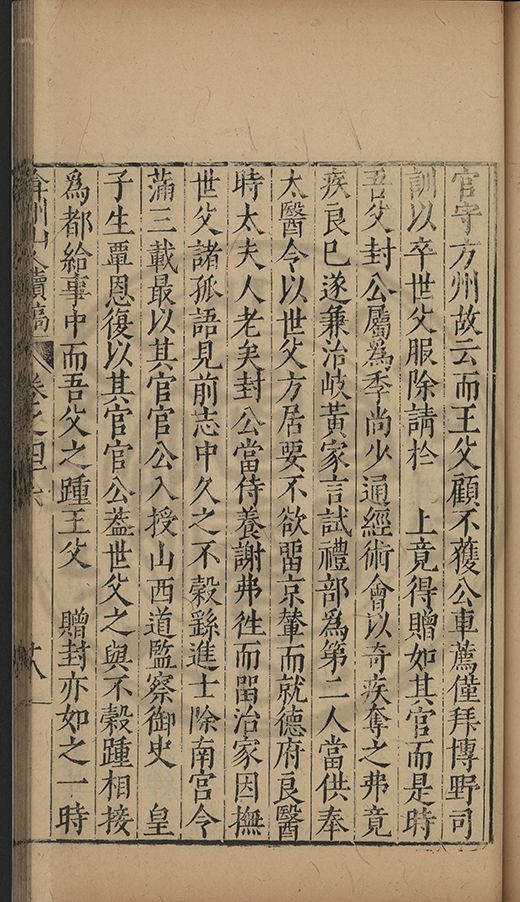 官守方州故云而王父顧不獲公車薦僅拜博野司
訓以卒世父服除請於　上竟得贈如其官而是時
吾父封公屬爲季尚少通經術會以奇疾奪之弗竟
疾良已遂兼治岐黃家言試禮部爲第二人當供奉
太醫令以世父方居要不欲畱京輦而就德府良醫
時太夫人老矣封公當侍養謝弗徃而畱治家因撫
世父諸孤語見前志中久之不穀繇進士除南宮令
蒲三載最以其官官公入授山西道監察御史　皇
子生覃恩復以其官官公葢世父之與不穀踵相接
爲都給事中而吾父之踵王父　贈封亦如之一時
弇州山人續稿　卷之